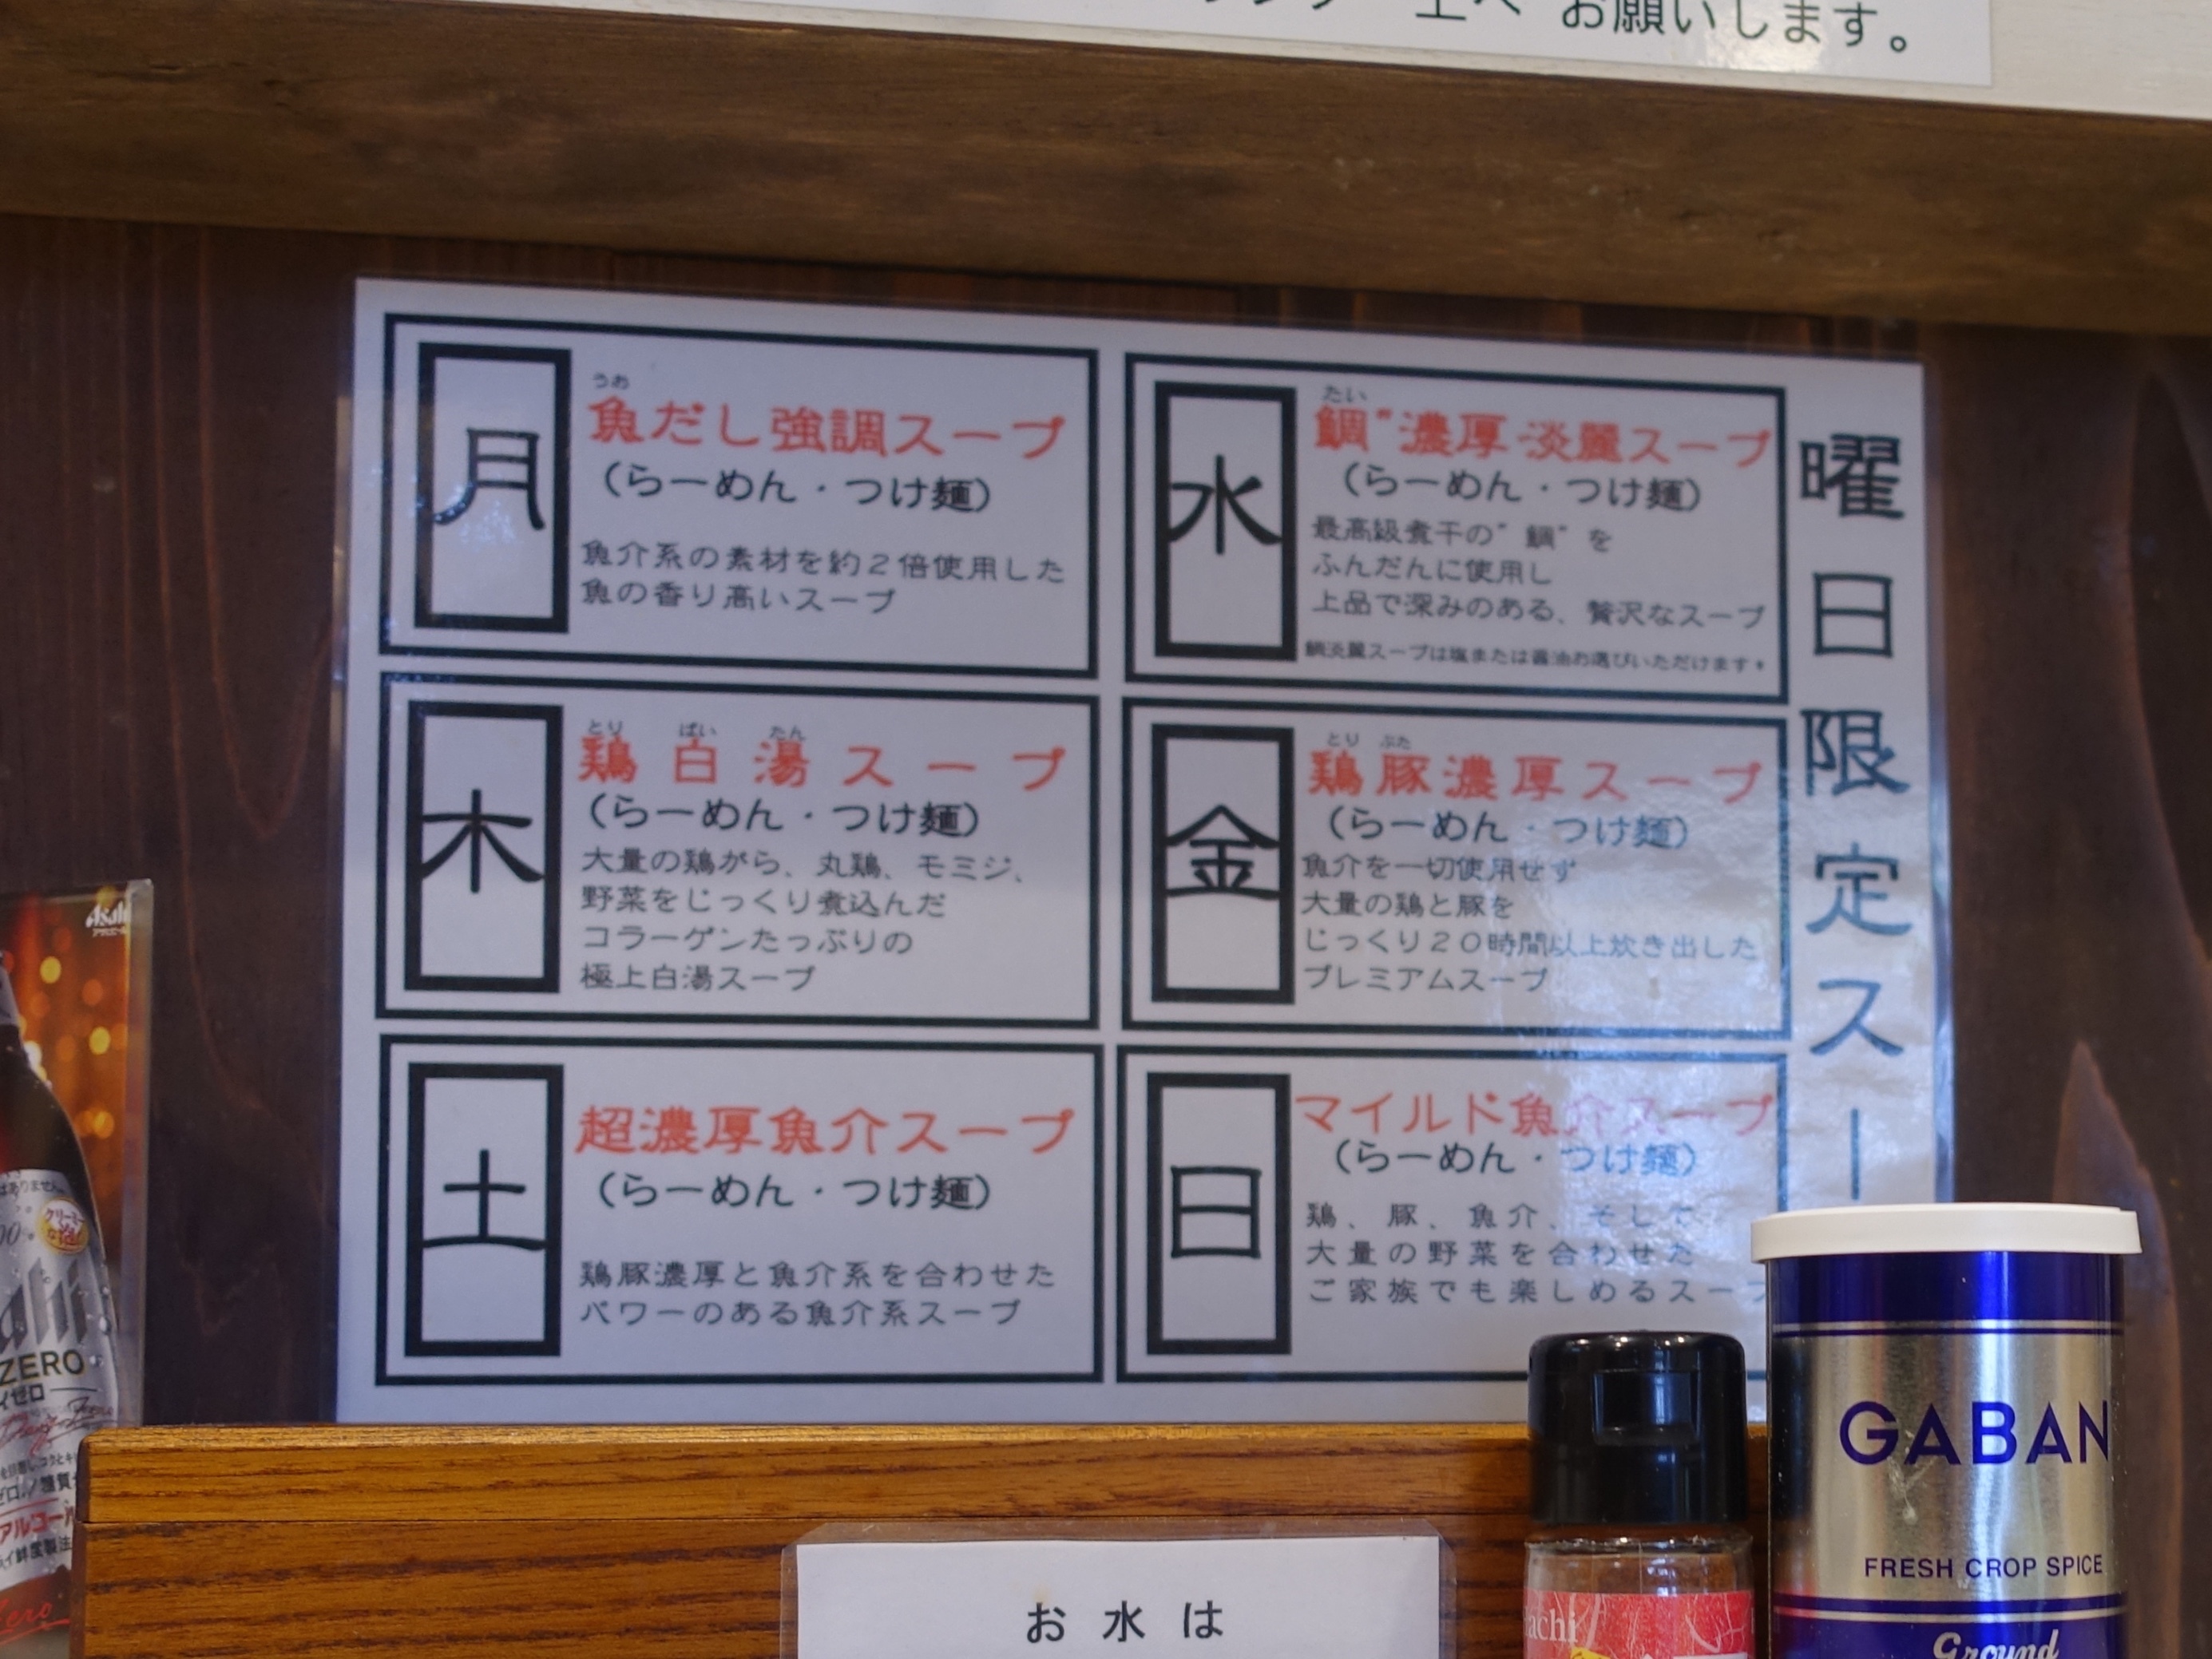 上へ お願いします。
曜日限定スー
月
うお
魚だし強調スープ
（らーめん・つけ麺）
魚介系の素材を約２倍使用した
魚の香り高いスープ
水
たい
鯛"濃厚・淡麗スープ
（らーめん・つけ麺）
最高級煮干の"鯛"を
ふんだんに使用し
上品で深みのある、贅沢なスープ
鯛淡麗スープは塩または醤油お選びいただけます。
木
とり ぱい たん
鶏白湯スープ
（らーめん・つけ麺）
大量の鶏がら、丸鶏、モミジ、
野菜をじっくり煮込んだ
コラーゲンたっぷりの
極上白湯スープ
金
とり ぶた
鶏豚濃厚スープ
（らーめん・つけ麺）
魚介を一切使用せず
大量の鶏と豚を
じっくり２０時間以上炊き出した
プレミアムスープ
土
超濃厚魚介スープ
（らーめん・つけ麺）
鶏豚濃厚と魚介系を合わせた
パワーのある魚介系スープ
日
マイルド魚介スープ
（らーめん・つけ麺）
鶏、豚、魚介、そして
大量の野菜を合わせた
ご家族でも楽しめるスープ
Asahi
アサヒビール
はありません。
クリーミーな泡!
ZERO
イゼロ
アルコール
Zero
お水は
achi
GABAN
FRESH CROP SPICE
Ground